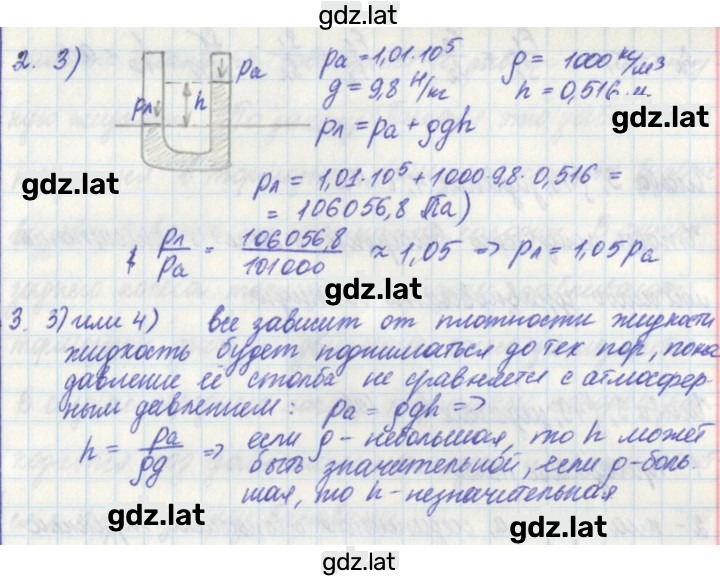 gdz.lat
2. 3)
pа
h
pл
pа = 1,01·10⁵
ρ = 1000 кг/м3
g = 9,8 Н/кг
h = 0,516 м
gdz.lat
pл = pа + ρgh
gdz.lat
pл = 1,01·10⁵ + 1000·9,8·0,516 =
= 106056,8 Па)
pл/pа = 106056,8/101000 ≈ 1,05 => pл = 1,05 pа
gdz.lat
3. 3) или 4) все зависит от плотности жидкости
жидкость будет подниматься до тех пор, пока
давление её столба не сравняется с атмосфер-
ным давлением: pа = ρgh =>
gdz.lat
h = pа/ρg => если ρ - небольшая, то h может
быть значительной, если ρ - боль-
шая, то h - незначительная
gdz.lat
gdz.lat
gdz.lat